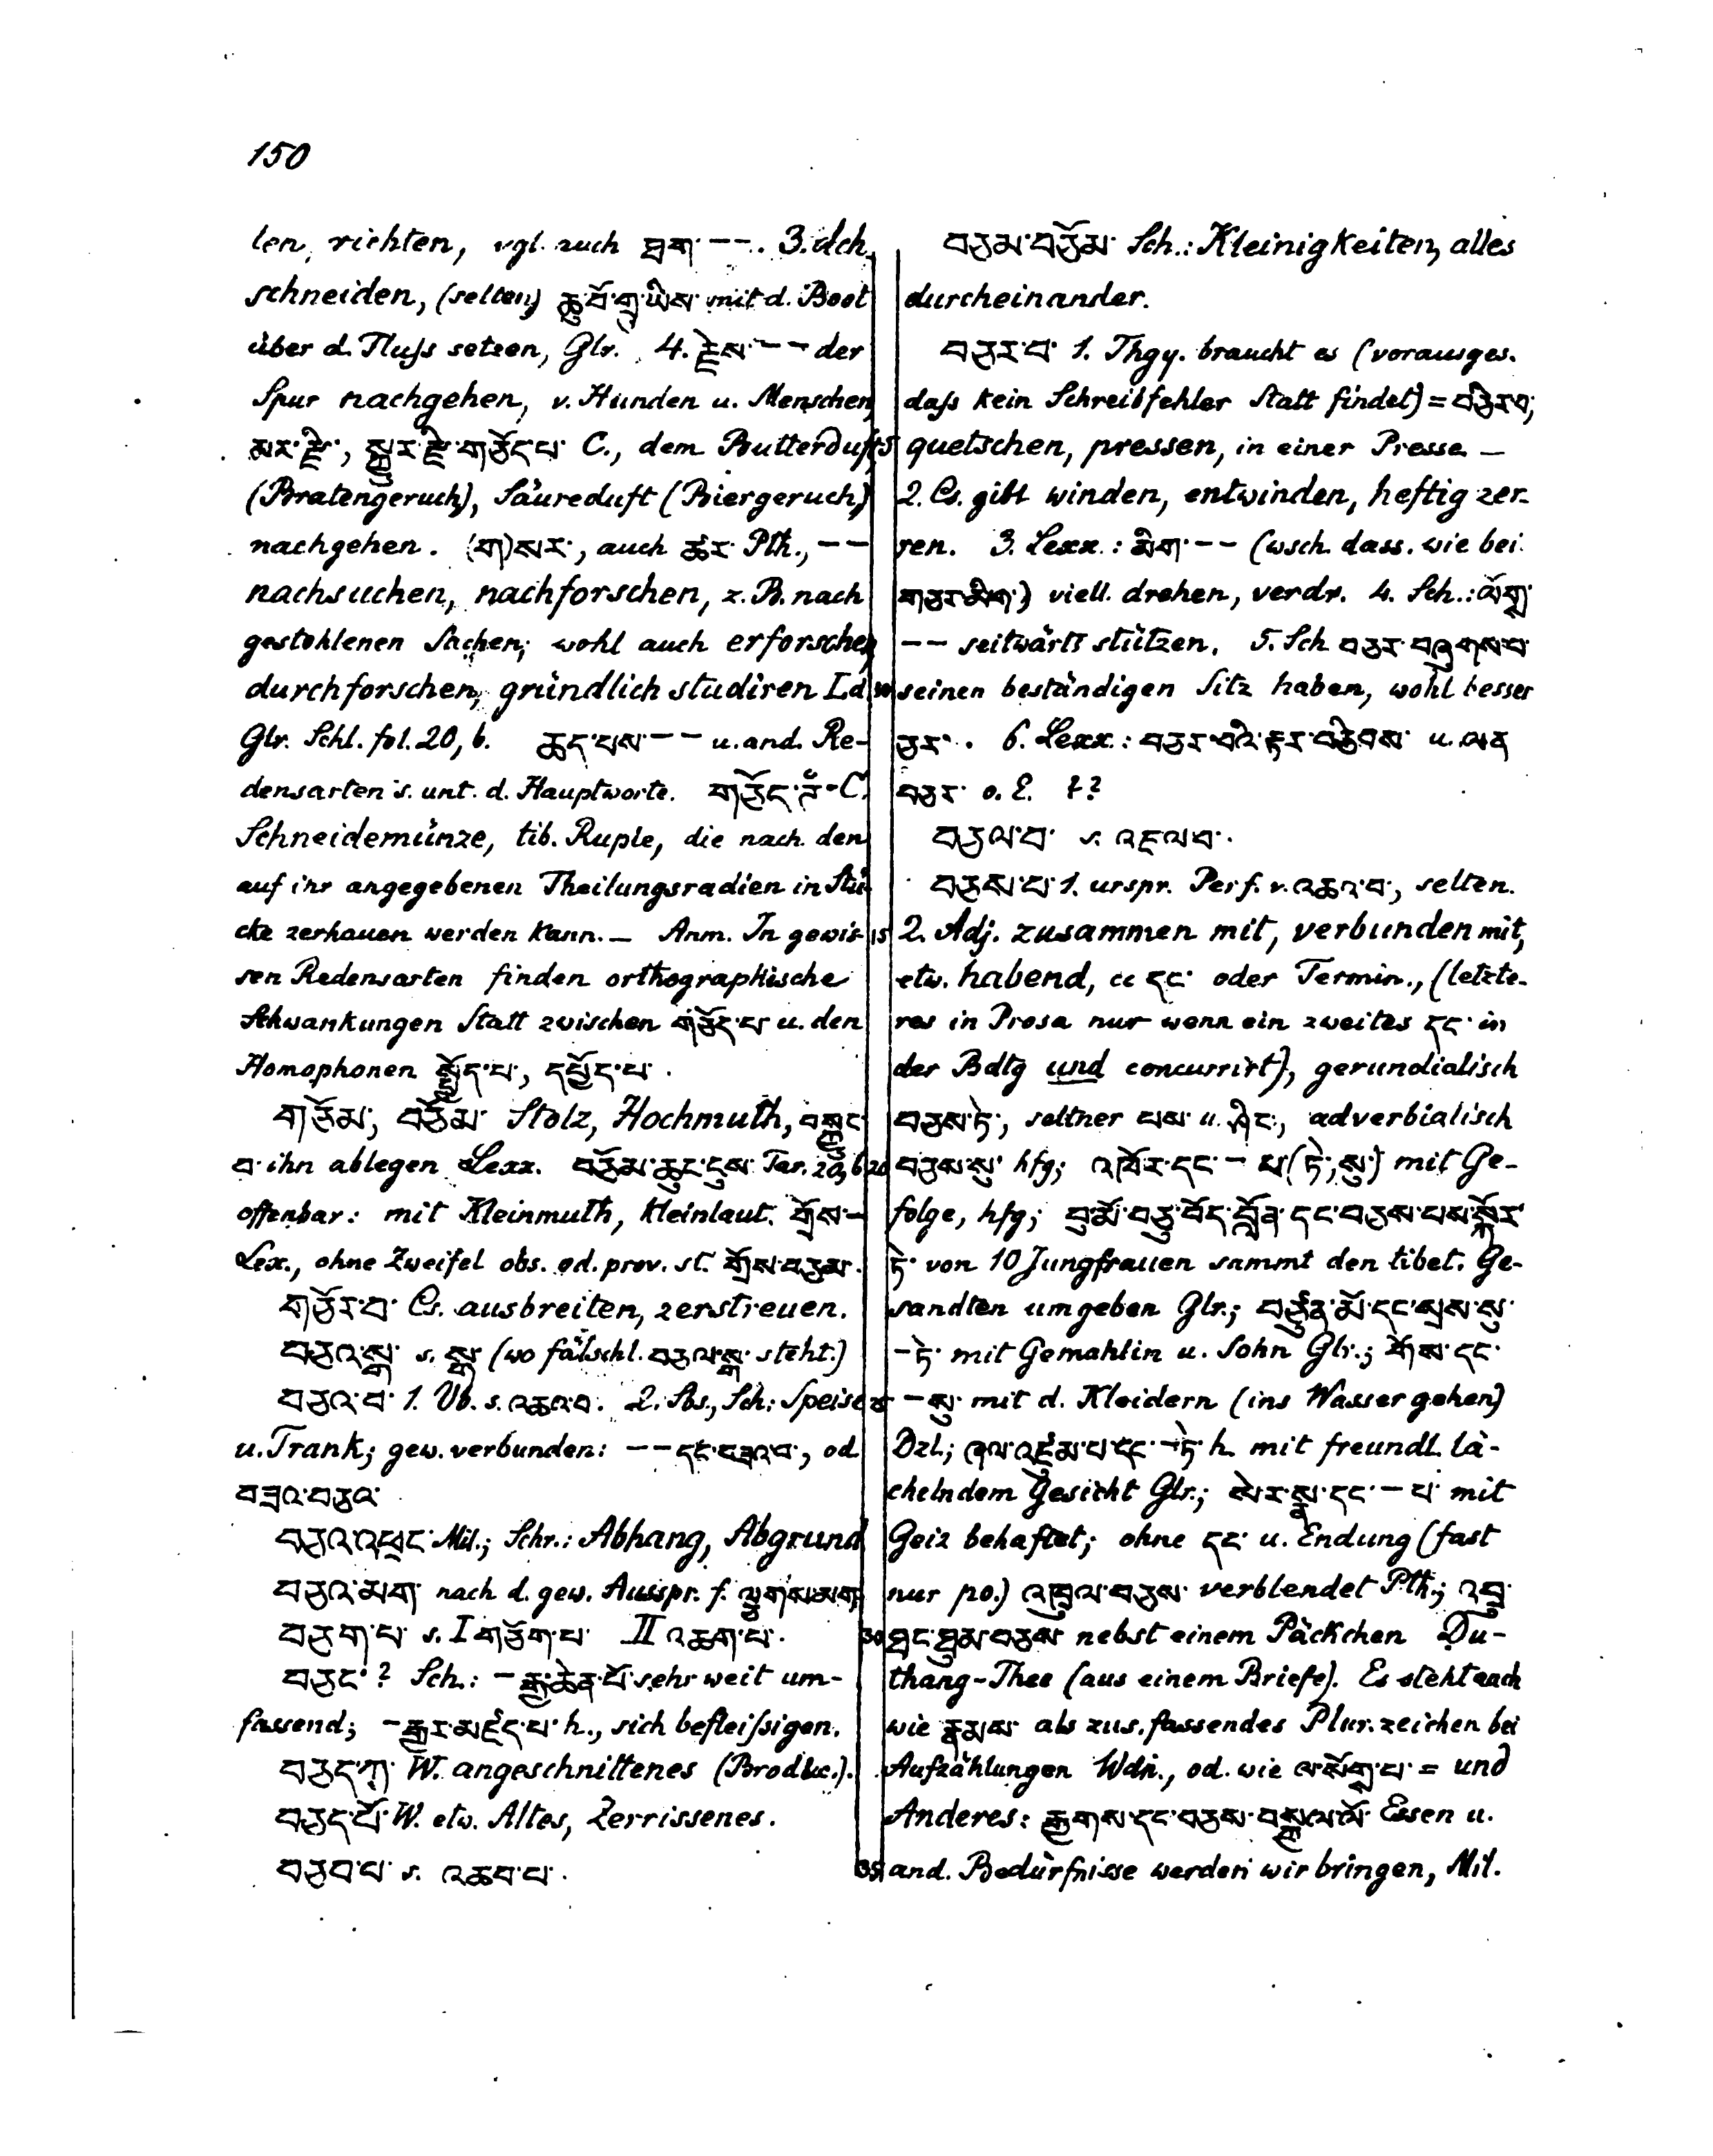 150
len, richten, vgl. auch ཐག་ — —. 3. dch.
schneiden, (selten) ཆུ་བོ་གྲུ་ཡིས་ mit d. Boot
über d. Fluss setzen, Glr. 4. རྗེས་ — — der
Spur nachgehen, v. Hunden u. Menschen,
མར་དྲི་, སྐྱུར་དྲི་གཅོད་པ་ C., dem Butterduft
(Bratengeruch), Säureduft (Biergeruch)
nachgehen. (ག)སར་, auch ཚར་ Pth., — —
nachsuchen, nachforschen, z. B. nach
gestohlenen Sachen; wohl auch erforschen,
durchforschen, gründlich studiren Ld.
Glr. Schl. fol. 20, b. ཆད་པས་ — — u. and. Re-
densarten s. unt. d. Hauptworte. གཅོད་ C.
Schneidemünze, tib. Rupie, die nach den
auf ihr angegebenen Theilungsradien in Stü-
cke zerhauen werden kann. — Anm. In gewis-
sen Redensarten finden orthographische
Schwankungen Statt zwischen གཅོད་པ་ u. den
Homophonen སྤྱོད་པ་, དཔྱོད་པ་.
གཅོམ་, བཅོམ་ Stolz, Hochmuth, བསྐྱུང་
བ་ ihn ablegen Lexx. བཅོམ་ཆུང་ངུས་ Tar. 20, b
offenbar: mit Kleinmuth, kleinlaut. གྲོས་ —
Lex., ohne Zweifel obs. od. prov. st. གྲོས་བཅམ་.
གཅོར་བ་ Cs. ausbreiten, zerstreuen.
བཅའ་སྒ་ s. སྒ་ (wo fälschl. བཅལ་སྒ་ steht.)
བཅའ་བ་ 1. Vb. s. འཆའ་བ. 2. Sbs., Sch: Speise
u. Trank; gew. verbunden: — — དང་བཟའ་བ་, od.
བཟའ་བཅའ་
བཅའ་འཕྲང་ Mil.; Schr.: Abhang, Abgrund
བཅའ་མག་ nach d. gew. Ausspr. f. ལྕགས་མག་
བཅག་པ་ s. I གཅོག་པ་ II འཆག་པ་.
བཅང་? Sch.: — རྒྱ་ཆེན་པོ་ sehr weit um-
fassend; — རྒྱར་མཛད་པ་ h., sich befleissigen.
བཅད་ཀ་ W. angeschnittenes (Brod &c.).
བཅད་པོ་ W. etw. Altes, Zerrissenes.
བཅབ་པ་ s. འཆབ་པ་.
བཅམ་བཅོམ་ Sch.: Kleinigkeiten, alles
durcheinander.
བཅར་བ་ 1. Thgy. braucht es (vorausges.
dass kein Schreibfehler Statt findet) = བཙིར་བ,
5 quetschen, pressen, in einer Presse —
2. Cs. gibt winden, entwinden, heftig zer-
ren. 3. Lexx.: མིག་ — — (wsch. dass. wie bei
གཅར་མིག་) viell. drehen, verdr. 4. Sch.: ལོགྲ་
— — seitwärts stützen. 5. Sch བཅར་བཞུགས་བ་
10 seinen beständigen Sitz haben, wohl besser
ཅར་. 6. Lexx.: བཅར་བའི་རྟར་བཅིབས་ u. ལན
བཅར་ o. E. ??
བཅལ་བ་ s. འཇལ་བ་.
བཅས་པ་ 1. urspr. Perf. v. འཆའ་བ་, selten.
15 2. Adj. zusammen mit, verbunden mit,
etw. habend, cc དང་ oder Termin., (letzte-
res in Prosa nur wenn ein zweites དང་ in
der Bdtg und concurrirt), gerundialisch
བཅས་ཏེ་, seltner པས་ u. ཤིང་, adverbialisch
20 བཅས་སུ་ hfg; འཁོར་དང་ — པ་(ཏེ་, སུ་) mit Ge-
folge, hfg; བུ་མོ་བཅུ་བོད་བློན་དང་བཅས་པས་སྐོར་
ཏེ་ von 10 Jungfrauen sammt den tibet. Ge-
sandten umgeben Glr.; བཙུན་མོ་དང་སྲས་སུ་
— ཏེ་ mit Gemahlin u. Sohn Glr.; གོས་དང་
25 — སུ་ mit d. Kleidern (ins Wasser gehen)
Dzl.; ཞལ་འཛུམ་པ་དང་ — ཏེ་ h. mit freundl. lä-
chelndem Gesicht Glr.; སེར་སྣ་དང་ — པ་ mit
Geiz behaftet; ohne དང་ u. Endung (fast
nur po.) འཁྲུལ་བཅས་ verblendet Pth.; འབྲུ་
30 ཐང་ཐུམ་བཅས་ nebst einem Päckchen Du-
thang-Thee (aus einem Briefe). Es steht auch
wie རྣམས་ als zus. fassendes Plur. zeichen bei
Aufzählungen Wdn., od. wie ལ་སོགྲ་པ་ = und
Anderes: རྒྱགས་དང་བཅས་བསྐྱལ་ལོ་ Essen u.
35 and. Bedürfnisse werden wir bringen, Mil.